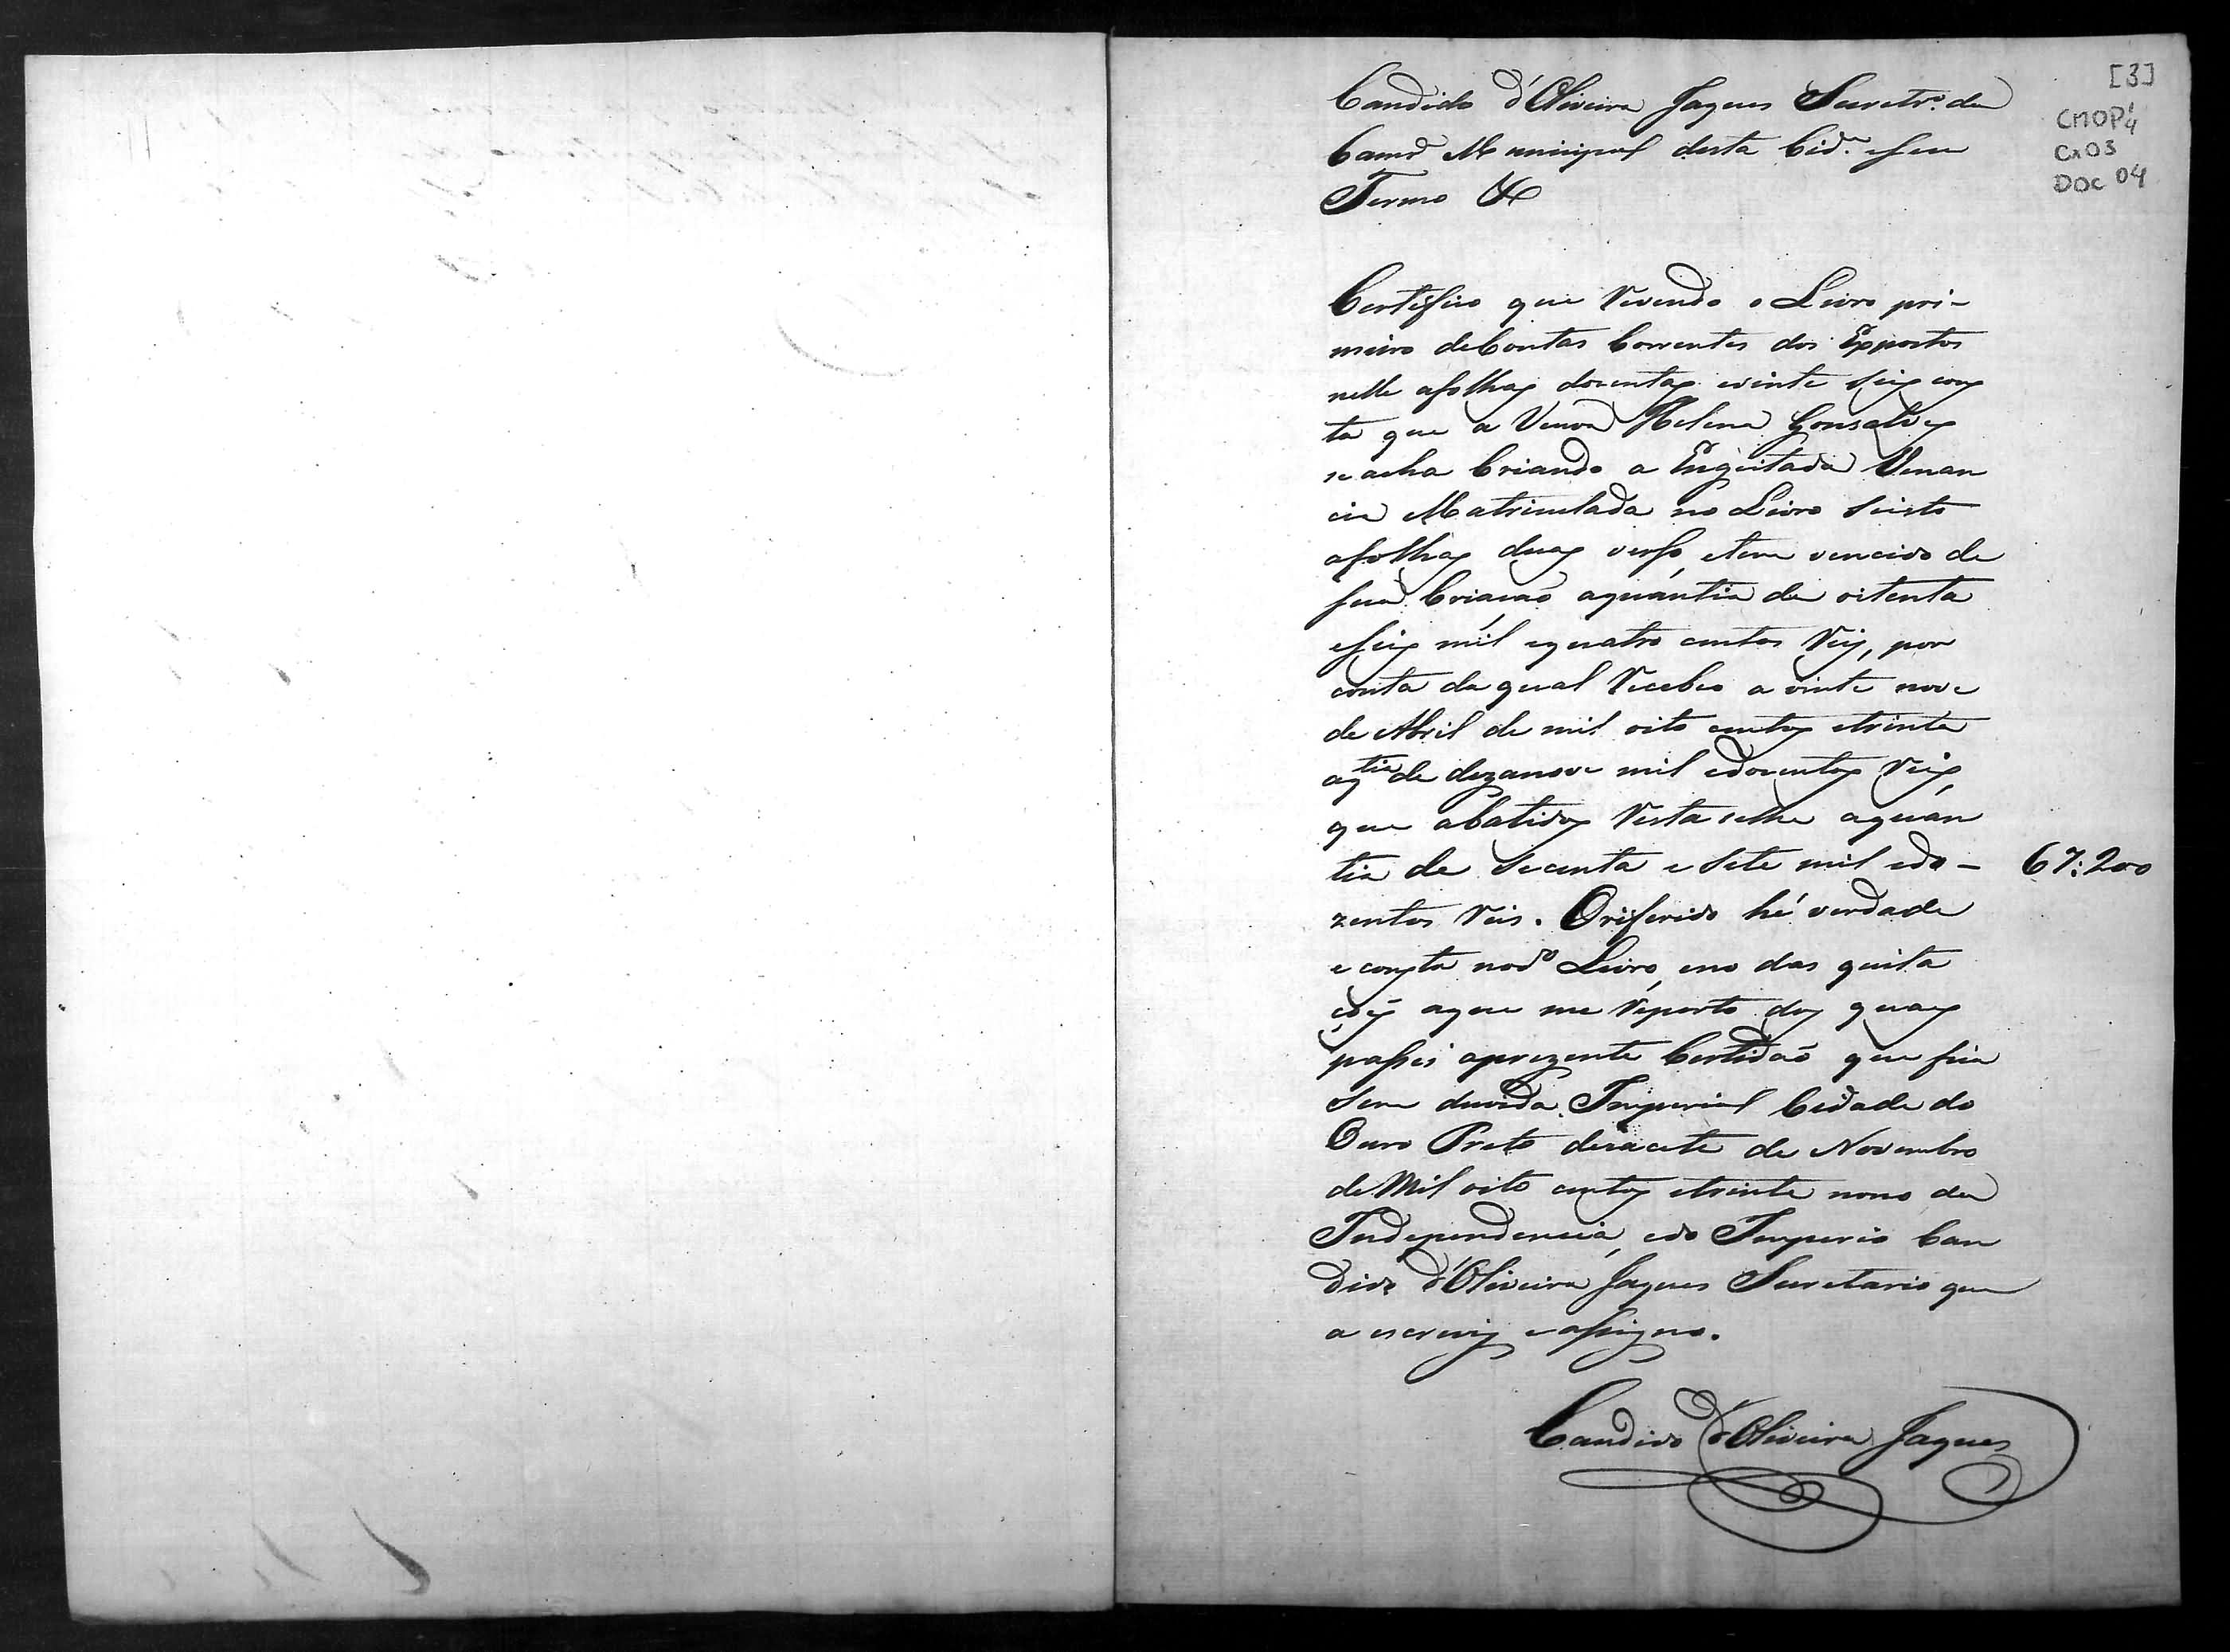 [3]
CMOP 4
Cx03
DOC 04
Candido d'Oliveira Jaques Secretrº. da
Camrª Municipal desta Cidᵉ. e seu
Termo &
Certefico que revendo o Livro pri-
meiro de Contas Correntes dos Expostos
nelle afolhas dozentas evinte seis cons
ta que a Viuva Helena Gonsalves
se acha Criando a Engeitada Venan
cia Matriculada no Livro seisto
afolhas duas verso, etem vencido de
sua Criacaõ aquantia de oitenta
eseis mil equatro centos reis, por
conta da qual recebeo a vinte nove
de Abril de mil oito centos etrinta
aqᵗⁱᵃ de dezanove mil edozentos reis,
que abatidos resta selhe aquan
tia de secenta e sete mil edo-
67:200
zentos reis. Oriferido hé verdade
e consta nodº Livro, eno das quita
cões aque me reporto dos quaes
passei aprezente Certidaõ que fica
sem duvida. Imperial Cidade do
Ouro Preto dezacete de Novembro
de Mil oito centos etrinta nono da
Independencia, edo Imperio Can
dido d'Oliveira Jaques Secretario que
a escrevij e assigno.
Candido d'Oliveira Jaques